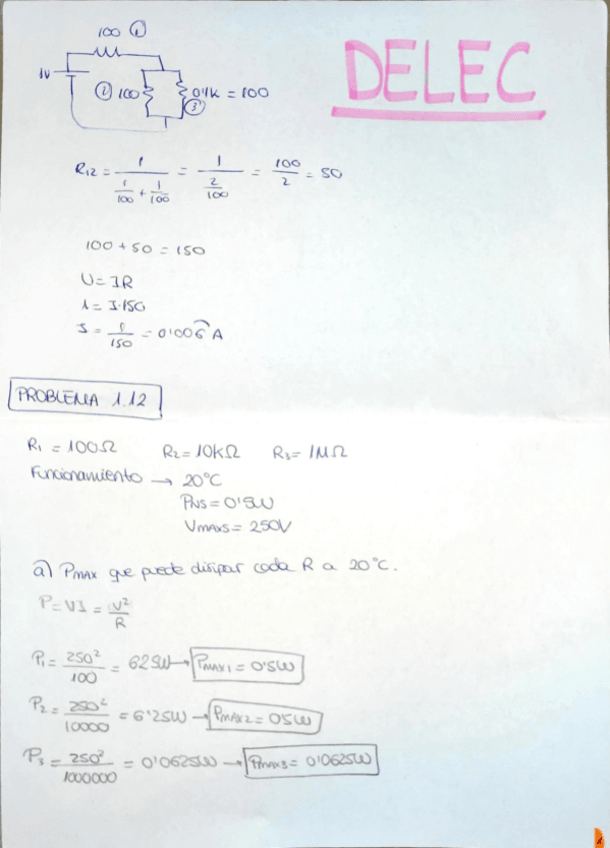 DELEC
100 ①
1V
② 100
0'1K = 100
③
R12 = 1 / (1/100 + 1/100) = 1 / (2/100) = 100/2 = 50
100 + 50 = 150
U = IR
1 = I·150
I = 1/150 = 0'006̂ A
PROBLEMA 1.12
R1 = 100Ω R2 = 10KΩ R3 = 1MΩ
Funcionamiento → 20°C
PNS = 0'5W
VMAXS = 250V
a) PMAX que puede disipar cada R a 20°C.
P = VI = V²/R
P1 = 250²/100 = 625W → PMAX1 = 0'5W
P2 = 250²/10000 = 6'25W → PMAX2 = 0'5W
P3 = 250²/1000000 = 0'0625W → PMAX3 = 0'0625W